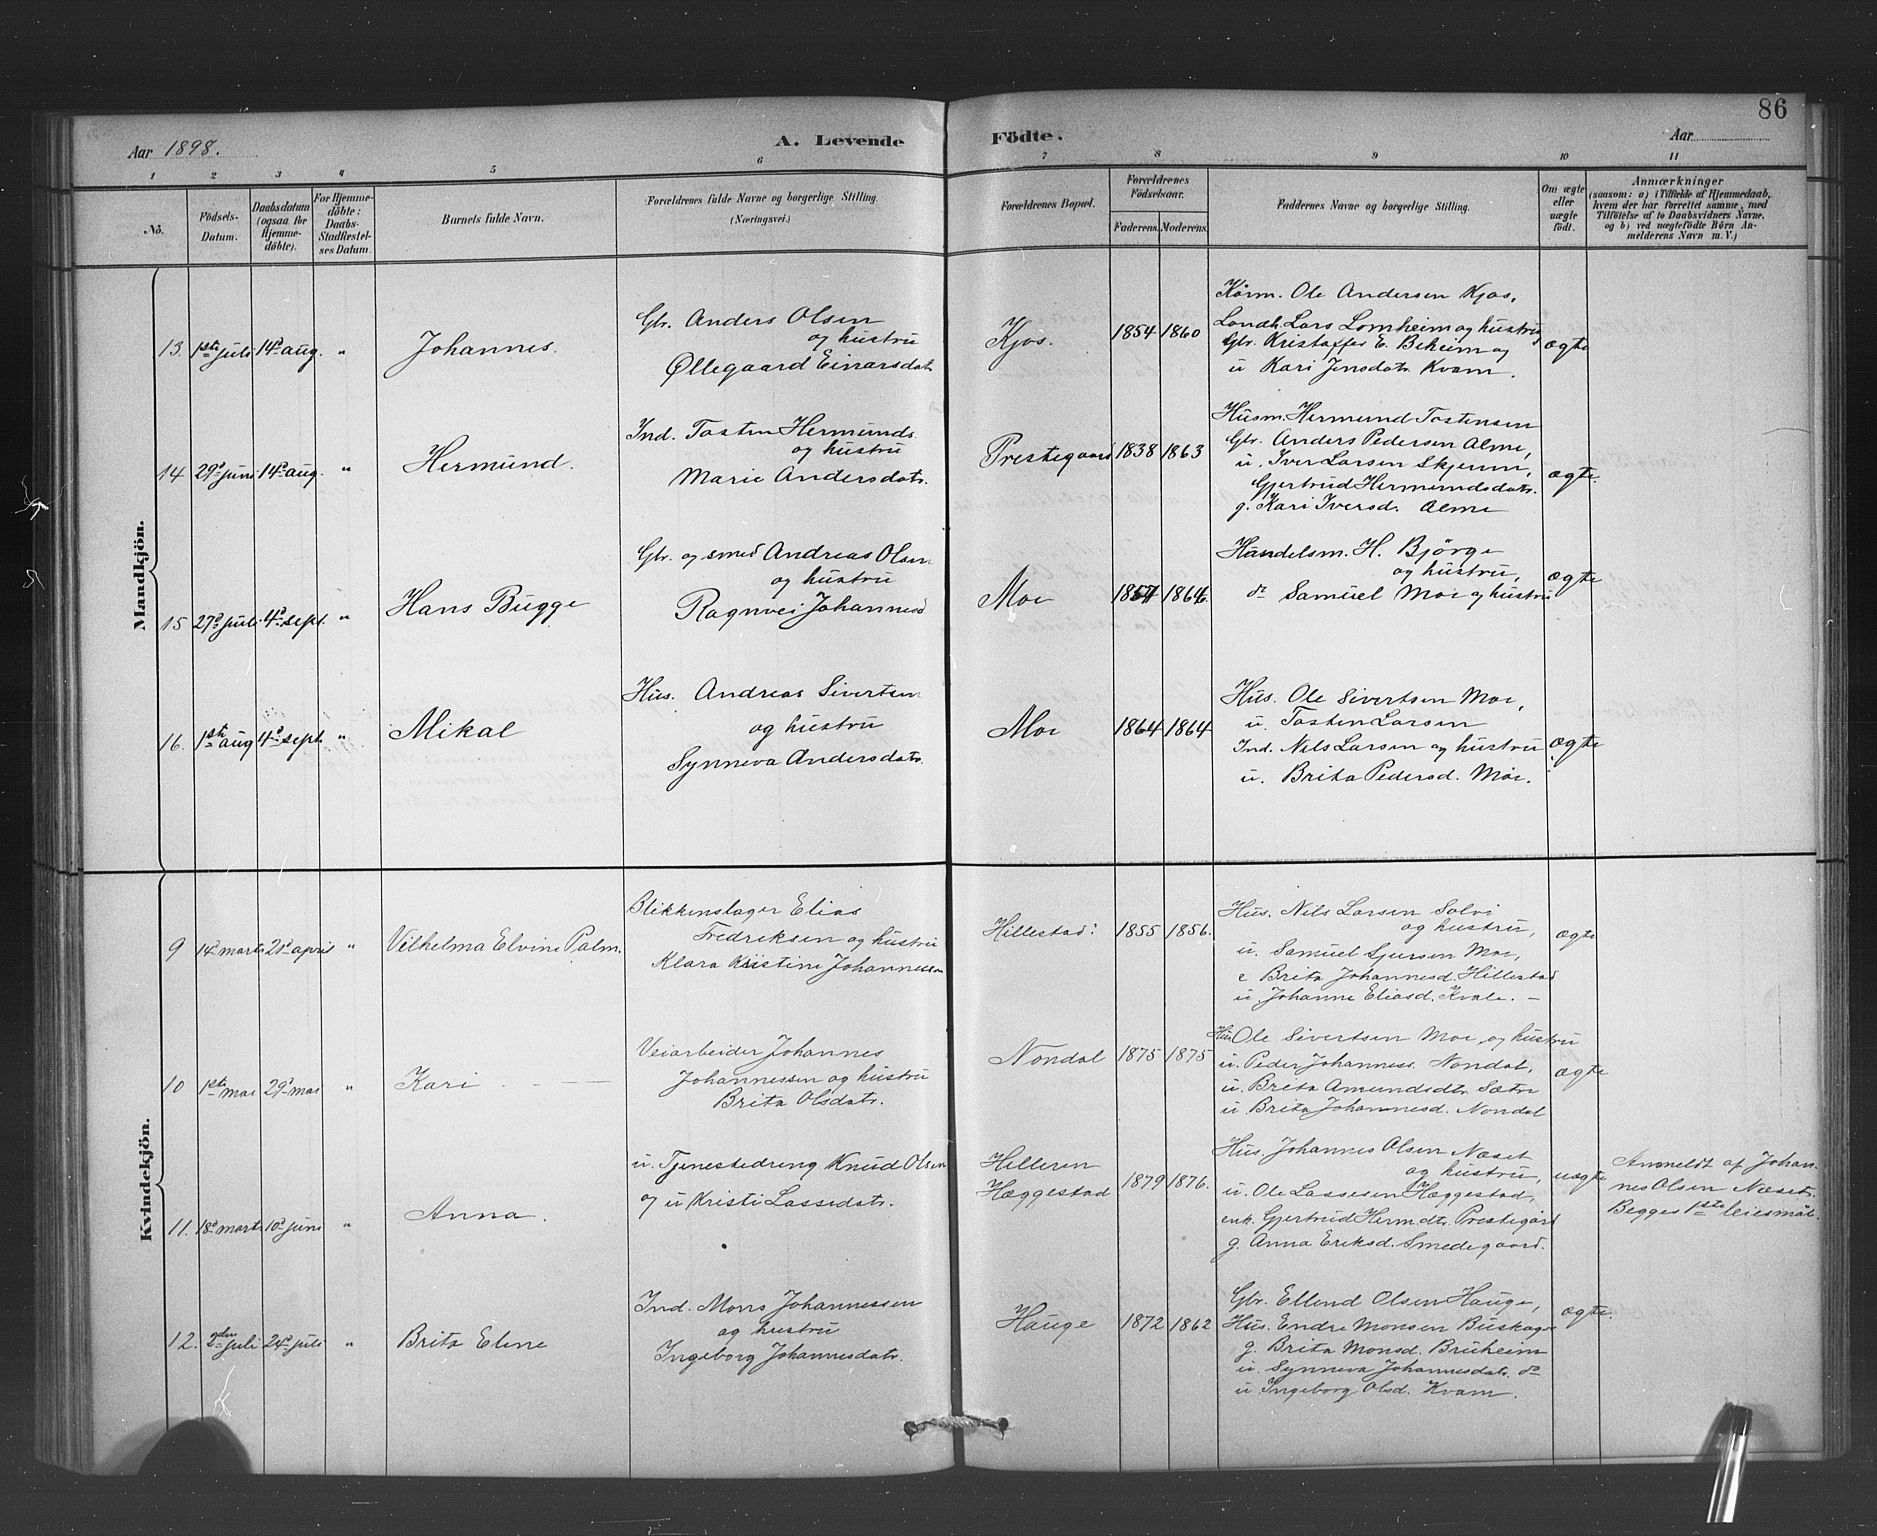 86
Aar 1898.
A. Levende Födte.
Aar
1 2 3 4 5 6 7 8 9 10 11
No.
Födsels-
Datum.
Daabsdatum
(ogsaa for
Hjemme-
döbte).
For Hjemme-
döbte:
Daabs-
Stadfæstel-
ses Datum.
Barnets fulde Navn.
Forældrenes fulde Navne og borgerlige Stilling.
(Næringsvei.)
Forældrenes Bopæl.
Forældrenes
Födselsaar.
Faderens. Moderens.
Faddernes Navne og borgerlige Stilling.
Om ægte
eller
uægte
födt.
Anmærkninger
(saasom: a) i Tilfælde af Hjemmedaab,
hvem der har forrettet samme, med
Tilföielse af to Daabsvidners Navne,
og b) ved uægtefödte Börn An-
melderens Navn m. V.)
Mandkjön.
13. 1ste juli 14d aug. "
Johannes.
Gbr. Anders Olsen
og hustru
Øllegaard Einarsdatr
Kjos.
1854 1860
Kårm. Ole Andersen Kjos,
Landh. Lars Lomheim og hustru
Gbr. Kristoffer E. Beheim og
u Kari Jensdatr Kvam.
ægte
14 29d juni 14d aug. "
Hermund.
Ind. Tosten Hermunds.
og hustru
Marie Andersdatr.
Prestegaard
1838 1863
Husm. Hermund Tostensen
Gbr. Anders Pedersen Alme,
u. Iver Larsen Skjerum,
Gjertrud Hermundsdatr.
g. Kari Iversd. Alme
ægte.
15 27d juli 4d sept. "
Hans Bugge
Gbr. og smed Andreas Olsen
og hustru
Ragnvei Johannesd
Moe
1857 1864.
Handelsm. H. Bjørge
og hustru,
do Samuel Moe og hustru
ægte
16. 1ste aug 4d sept. "
Mikal
Hus. Andreas Sivertsen
og hustru
Synneva Andersdatr.
Moe
1864 1864
Hus. Ole Sivertsen Moe,
u. Tosten Larsen
Ind. Nils Larsen og hustru
u. Brita Pedersd. Moe.
ægte
Kvindekjön.
9 14d marts 21d april "
Vilhelma Elvine Palm.
Blikkenslager Elias
Fredriksen og hustru
Klara Kristine Johannessen
Hillestad:
1855 1856.
Hus. Nils Larsen Solvi
og hustru,
u. Samuel Sjursen Moe,
e Brita Johannesd. Hillestad
u. Johanne Eliasd. Kvale. —
ægte
10 1ste mai 29d mai "
Kari
Veiarbeider Johannes
Johannessen og hustru
Brita Olsdatr.
Nondal
1875 1875
Hus. Ole Sivertsen Moe, og hustru
u. Peder Johanness. Nondal,
u. Brita Amundsdtr. Sætre
u. Brita Johannesd. Nondal
ægte
11. 18d marts 10d juni "
Anna.
u. Tjenestedreng Knud Olsen
og u Kristi Lassedatr.
Helleren
Hæggestad
1879 1876.
Hus. Johannes Olsen Næset
og hustru,
u. Ole Lassesen Hæggestad,
enk. Gjertrud Herm.dtr. Prestegård
g. Anna Eriksd. Smedegaard.
uægte
Anmeldt af Johan-
nes Olsen Næset.
Begges 1ste leiesmål.
12. 2den juli 24d juli "
Brita Elene
Ind. Mons Johannessen
og hustru
Ingeborg Johannesdatr.
Hauge
1872 1862
Gbr. Ellend Olsen Hauge,
Hus. Endre Monsen Buskage
g. Brita Monsd. Bruheim
u. Synneva Johannesdatr. do
u Ingeborg Olsd. Kvam.
ægte.